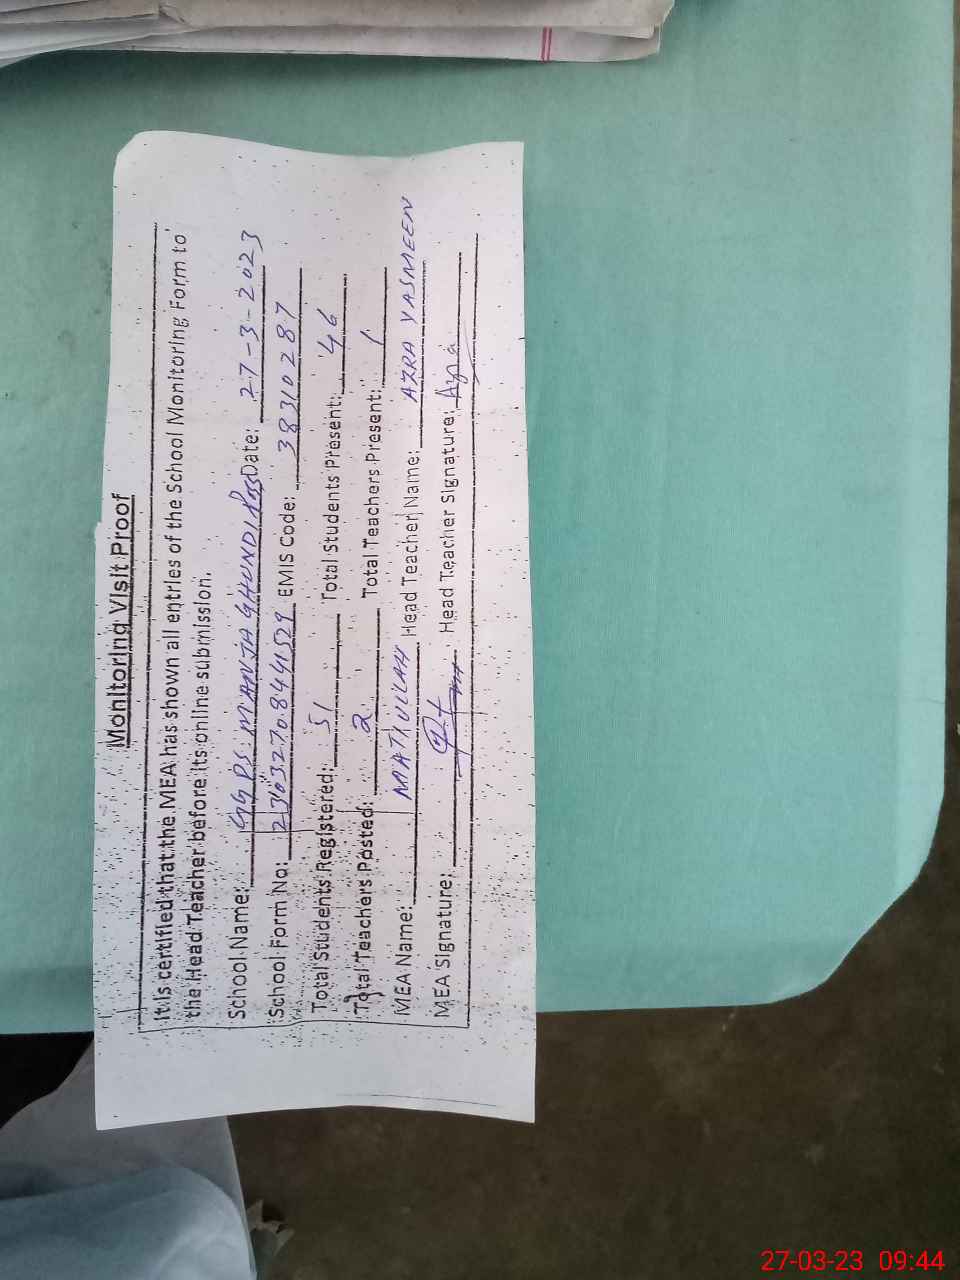 Monitoring Visit Proof
It is certified that the MEA has shown all entries of the School Monitoring Form to
the Head Teacher before its online submission.
School Name: GGPS: MANJA GHUNDI Date: 27-3-2023
School Form No: EMIS Code: 38310287
Total Students Registered: 51 Total Students Present: 46
Total Teachers Posted: 2 Total Teachers Present: 1
MEA Name: MATIULLAH Head Teacher Name: AZRA YASMEEN
MEA Signature: Head Teacher Signature:
27-03-23 09:44